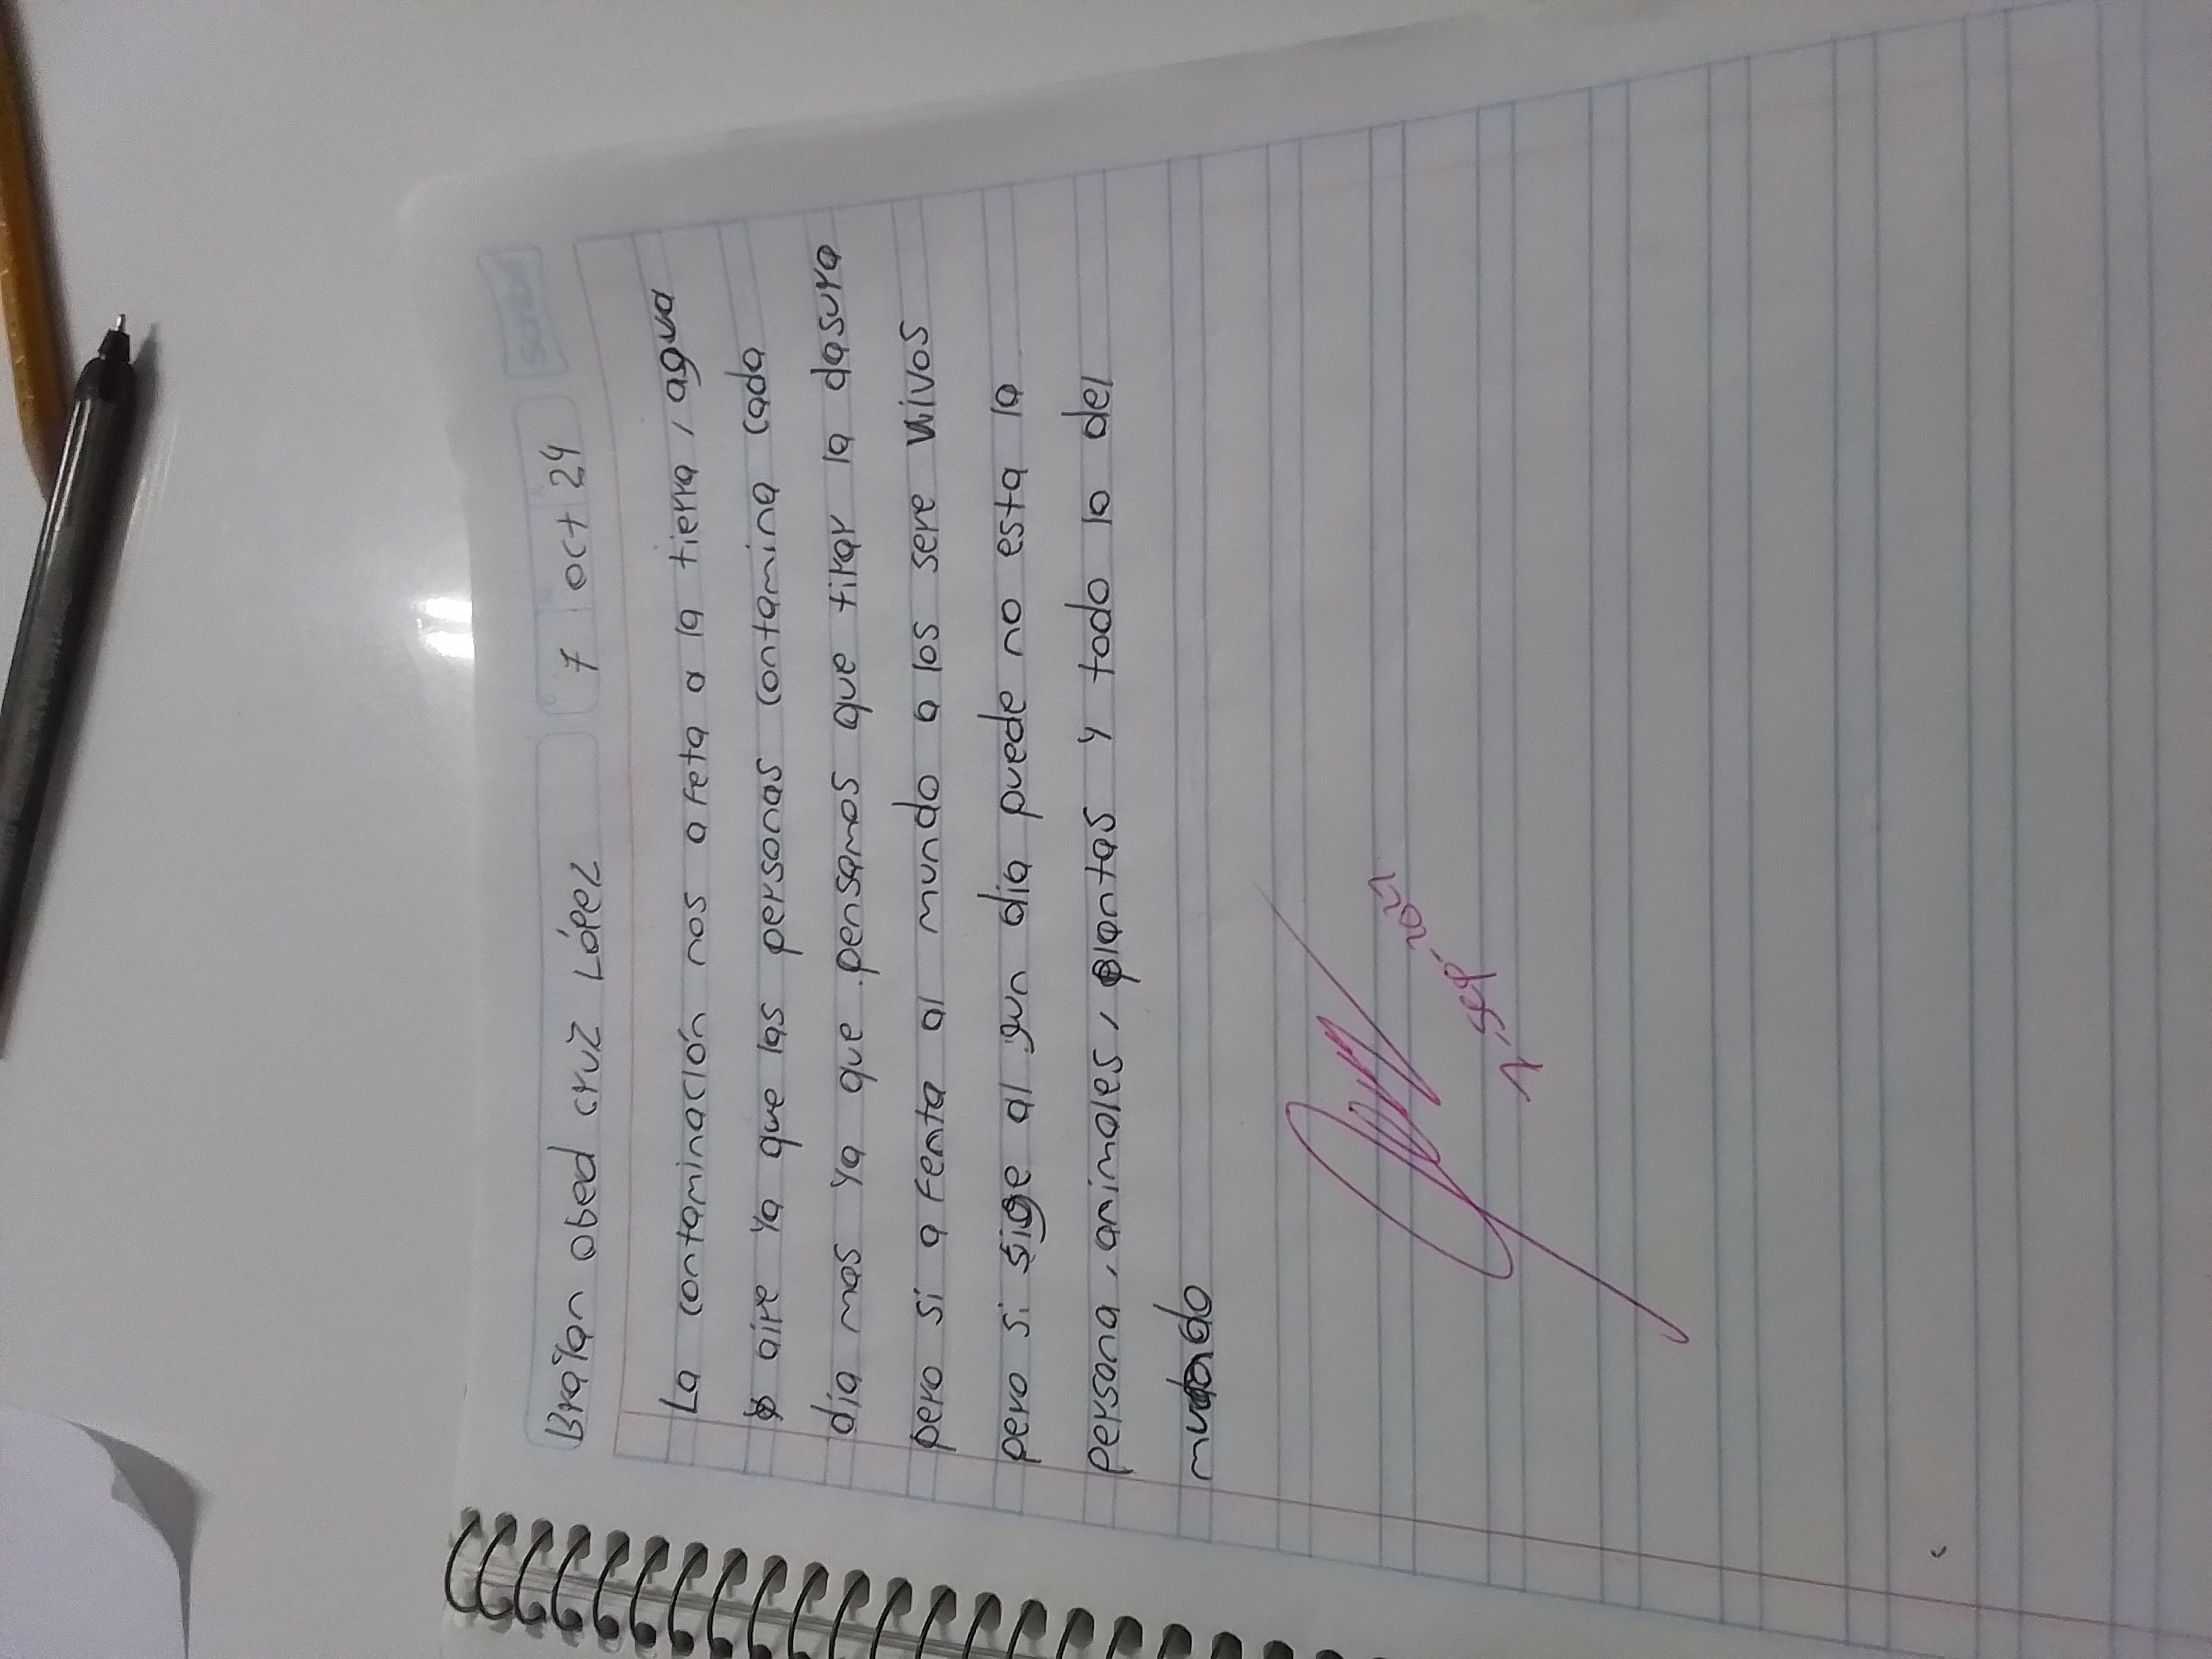 Braian obed cruz López 7 oct 24
Scribe
La contaminación nos a feta a la tierra, agua
aire ya que las personas contamina cada
día mas ya que pensamos que tirar la dasura
pero si a fenta al mundo a los sere vivos
pero si sige al gun dia puede no esta la
persona, animales, plantas y todo lo del
mundo